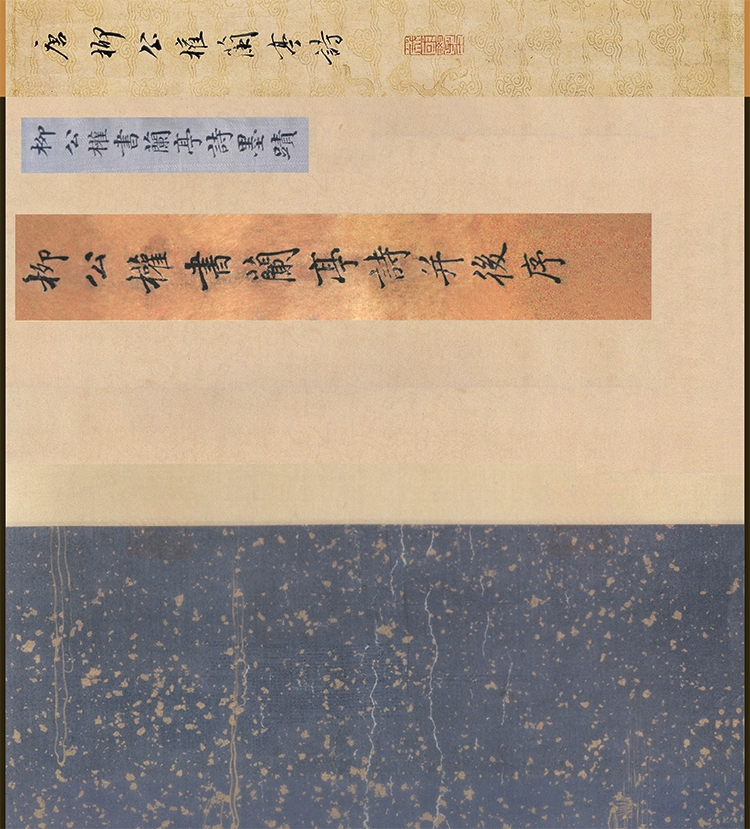 唐柳公權蘭亭詩
柳公權書蘭亭詩墨蹟
柳公權書蘭亭詩并後序